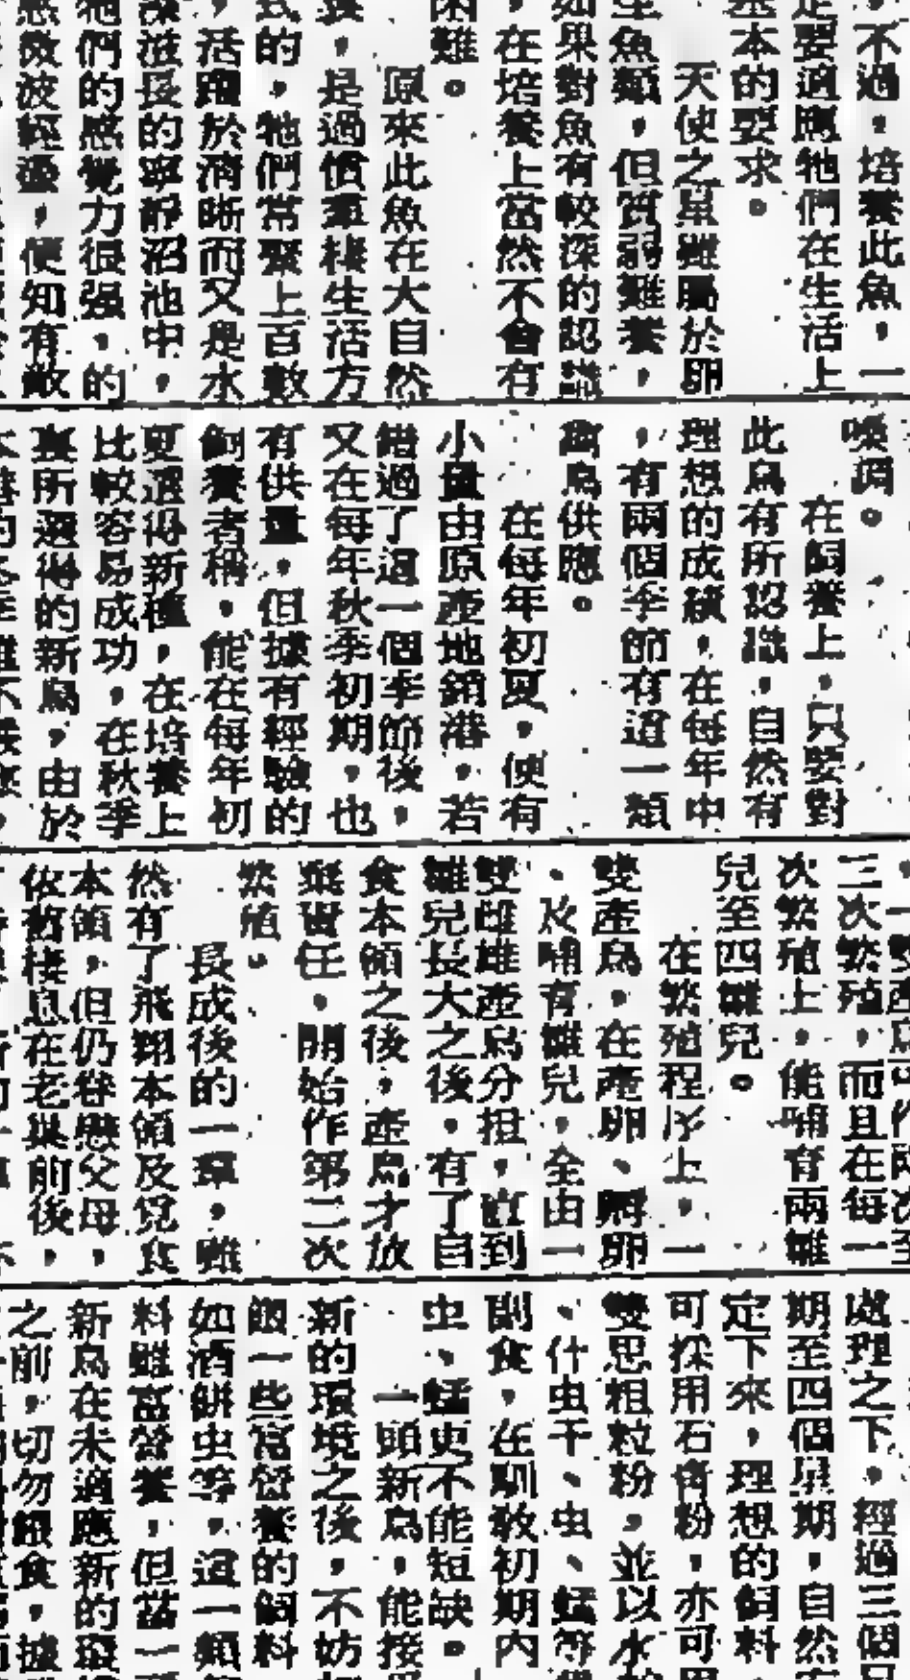 ，不過，培養此魚，一
定要適應牠們在生活上
基本的要求。
天使之星雖屬於卵
生魚類，但質弱難養，
如果對魚有較深的認識
，在培養上當然不會有
困難。
原來此魚在大自然
，是過慣羣棲生活方
式的，牠們常聚上百數
，活躍於清晰而又是水
滋長的寧靜沼池中，
牠們的感覺力很强，的
微波輕漫，便知有敵
喚調。
在飼養上，只要對
此鳥有所認識，自然有
理想的成績，在每年中
，有兩個季節有這一類
鳥供應。
在每年初夏，便有
小量由原產地銷港，若
錯過了這一個季節後，
又在每年秋季初期，也
有供量，但據有經驗的
飼養者稱，能在每年初
夏選得新種，在培養上
比較容易成功，在秋季
裏所選得的新鳥，由於
，一雙產鳥可作兩次至
三次繁殖，而且在每一
次繁殖上，能哺育兩雛
兒至四雛兒。
在繁殖程序上，一
雙產鳥，在產卵、孵卵
、及哺育雛兒，全由一
雙雌雄產鳥分担，直到
雛兒長大之後，有了自
食本領之後，產鳥才放
棄責任，開始作第二次
繁殖。
長成後的一羣，雖
然有了飛翔本領及覓食
本領，但仍眷戀父母，
依舊棲息在老巢前後，
處理之下，經過三個
期至四個星期，自然
定下來，理想的飼料
可採用石膏粉，亦可
雙思粗粒粉，並以水
、什虫干、虫、蜢等
副食，在馴教初期內
虫、蜢更不能短缺。
一頭新鳥，能接
新的環境之後，不妨
餵一些富營養的飼料
如酒餅虫等，這一類
料雖富營養，但當一
新鳥在未適應新的環
之前，切勿餵食，據